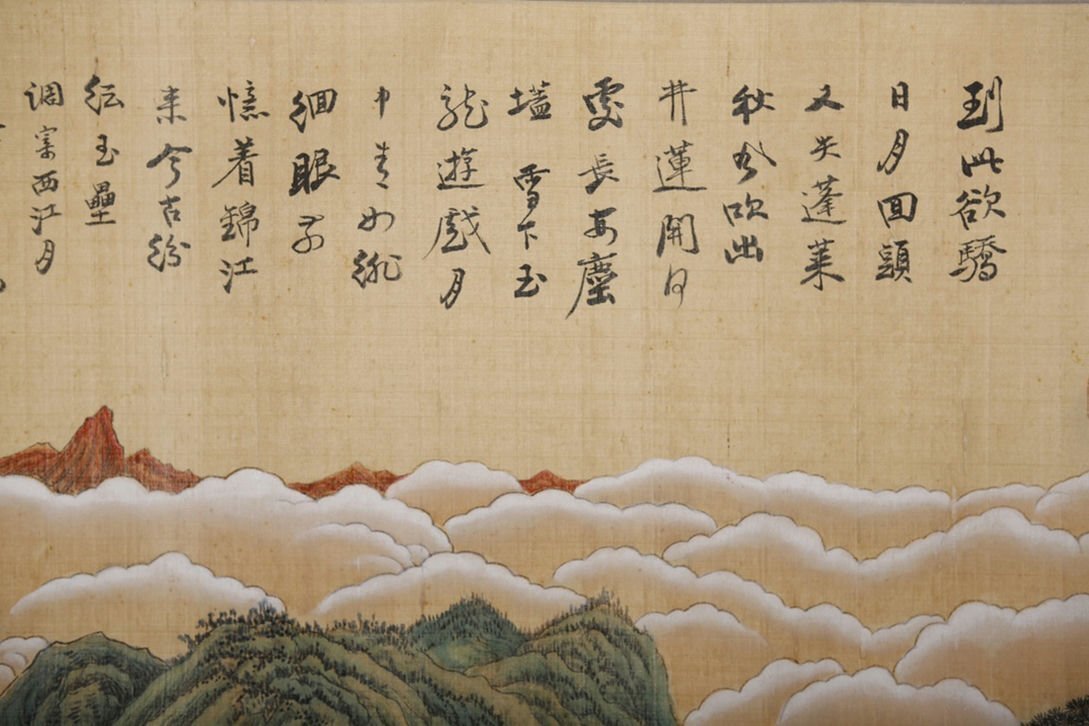 到此欲驕
日月回頭
又失蓬萊
秋風吹出
井蓮開何
處長安塵
壒雪下玉
龍遊戲月
中青女徘
徊眼前
憶着錦江
來今古紛
紜玉壘
調寄西江月